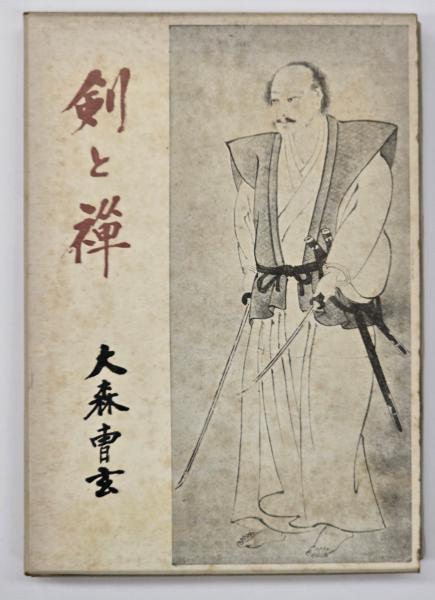 剣と禅
大森曹玄